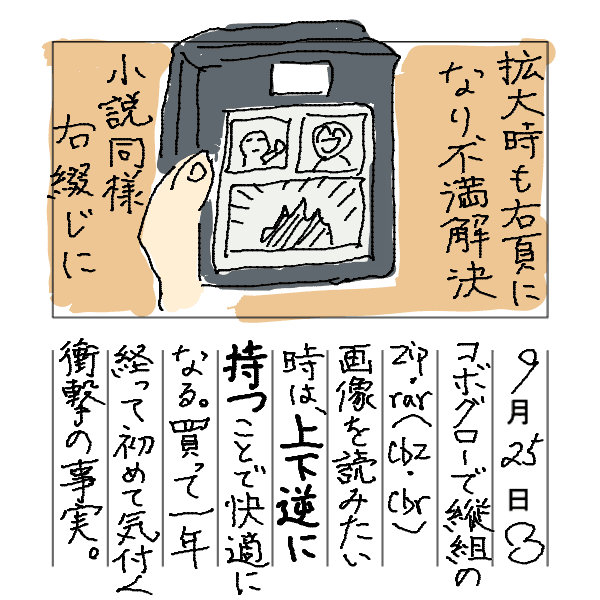 拡大時も右頁に
なり、不満解決
小説同様
右綴じに
9月25日
コボグローで縦組の
zip・rar(cbz・cbr)
画像を読みたい
時は、上下逆に
持つことで快適に
なる。買って一年
経って初めて気付く
衝撃の事実。